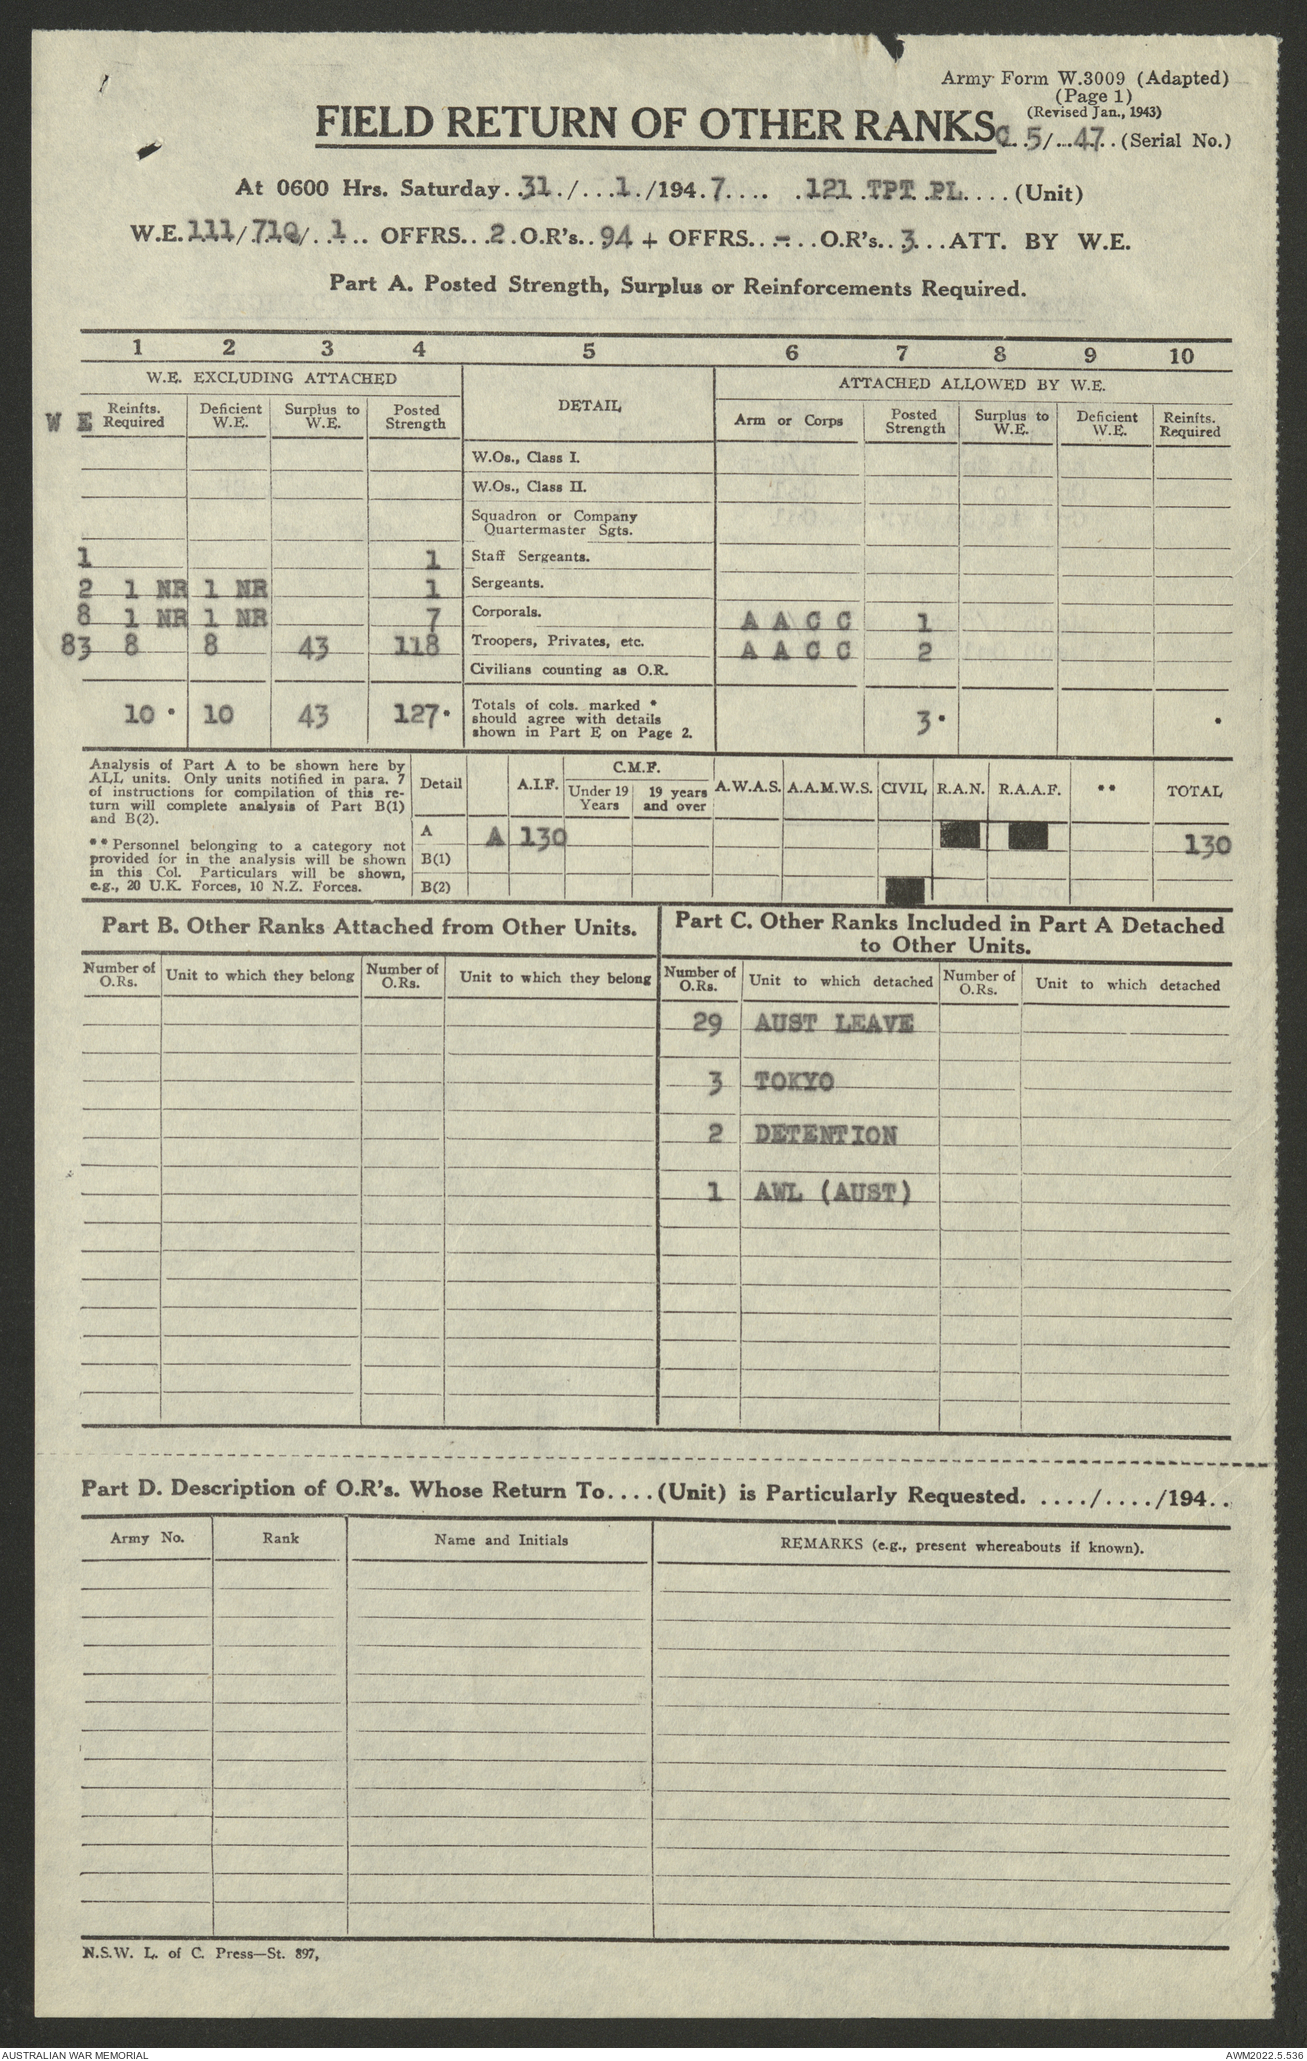 Army Form W.3009 (Adapted)
(Page 1)
(Revised Jan., 1943)
FIELD RETURN OF OTHER RANKS C. 5/...47..(Serial No.)
At 0600 Hrs. Saturday..31./...1./194.7.... .121.TPT.PL....(Unit)
W.E.111/71Q/..1... OFFRS...2.O.R's..94 + OFFRS..-...O.R's..3...ATT. BY W.E.
Part A. Posted Strength, Surplus or Reinforcements Required.
1 2 3 4 5 6 7 8 9 10
W.E. EXCLUDING ATTACHED DETAIL ATTACHED ALLOWED BY W.E.
W E Reinfts. Required Deficient W.E. Surplus to W.E. Posted Strength Arm or Corps Posted Strength Surplus to W.E. Deficient W.E. Reinfts. Required
W.Os., Class I.
W.Os., Class II.
Squadron or Company
Quartermaster Sgts.
1 1 Staff Sergeants.
2 1 NR 1 NR 1 Sergeants.
8 1 NR 1 NR 7 Corporals. A A C C 1
83 8 8 43 118 Troopers, Privates, etc. A A C C 2
Civilians counting as O.R.
10 * 10 43 127* Totals of cols. marked * should agree with details shown in Part E on Page 2. 3* *
Analysis of Part A to be shown here by
ALL units. Only units notified in para. 7
of instructions for compilation of this re-
turn will complete analysis of Part B(1)
and B(2).
** Personnel belonging to a category not
provided for in the analysis will be shown
in this Col. Particulars will be shown,
e.g., 20 U.K. Forces, 10 N.Z. Forces.
Detail A.I.F. C.M.F. Under 19 Years 19 years and over A.W.A.S. A.A.M.W.S. CIVIL R.A.N. R.A.A.F. ** TOTAL
A A 130 130
B(1)
B(2)
Part B. Other Ranks Attached from Other Units.
Part C. Other Ranks Included in Part A Detached
to Other Units.
Number of O.Rs. Unit to which they belong Number of O.Rs. Unit to which they belong Number of O.Rs. Unit to which detached Number of O.Rs. Unit to which detached
29 AUST LEAVE
3 TOKYO
2 DETENTION
1 AWL (AUST)
Part D. Description of O.R's. Whose Return To....(Unit) is Particularly Requested. ..../..../194..
Army No. Rank Name and Initials REMARKS (e.g., present whereabouts if known).
N.S.W. L. of C. Press—St. 897,
AUSTRALIAN WAR MEMORIAL AWM2022.5.536